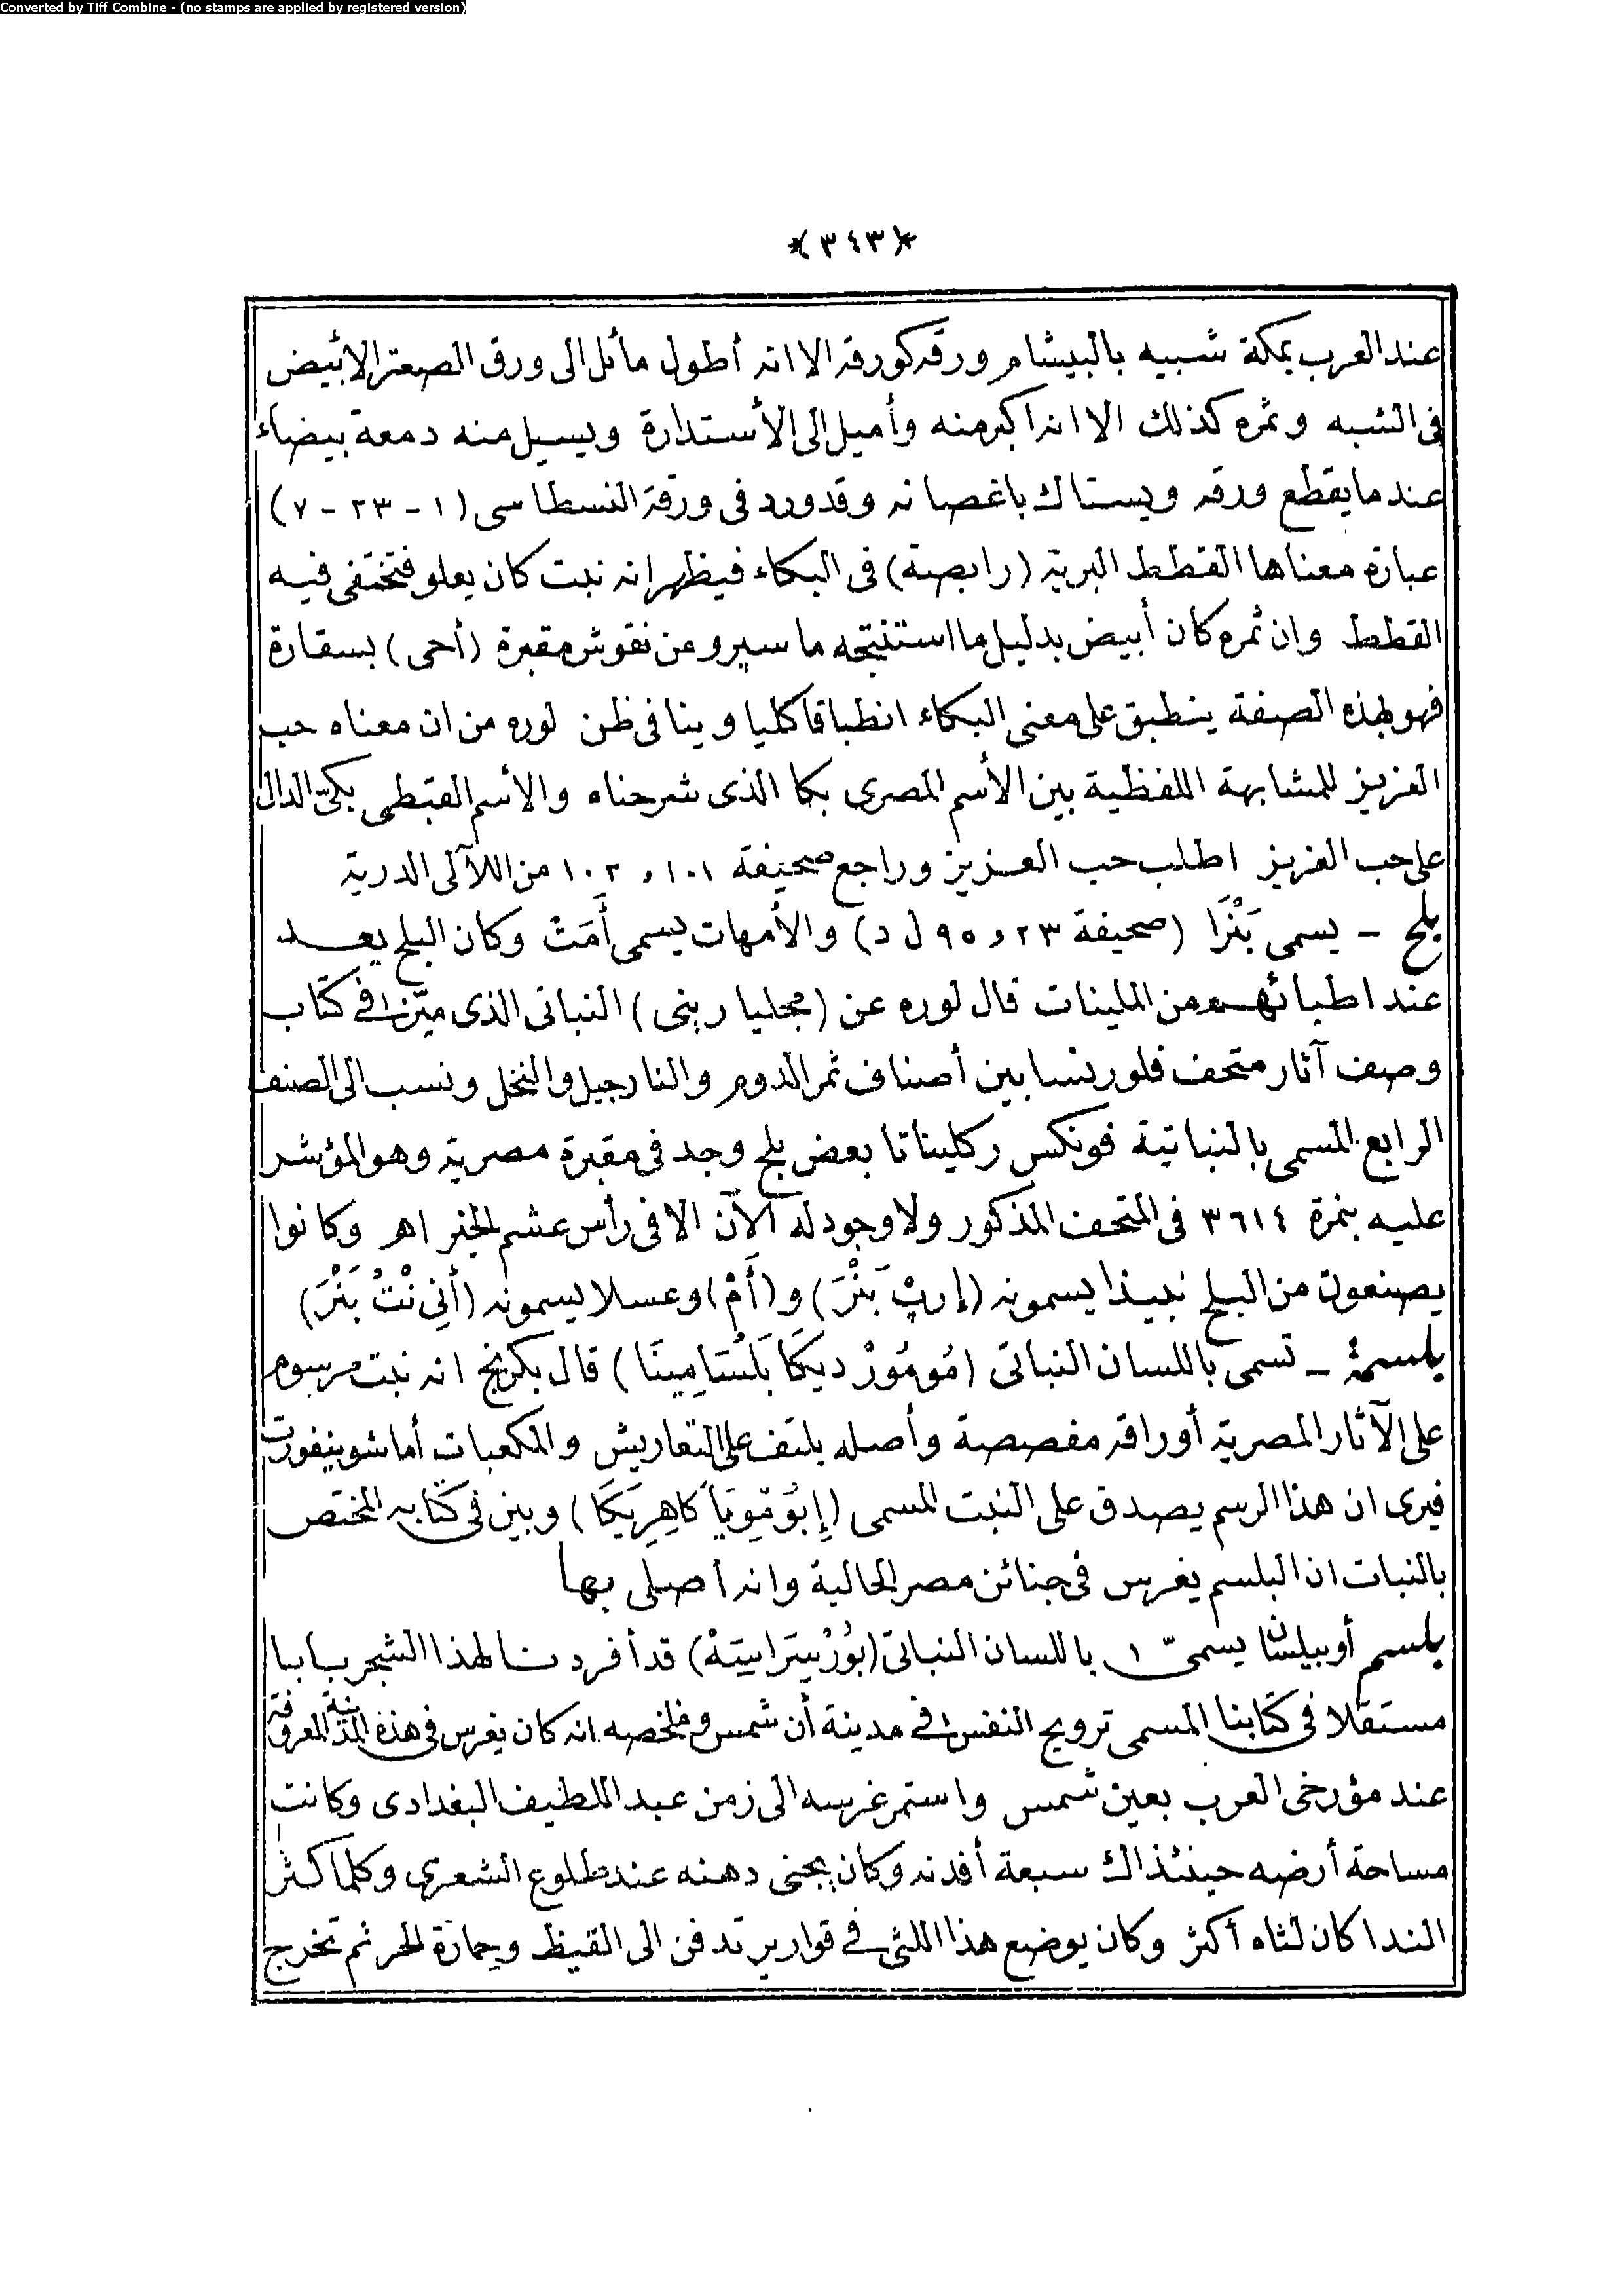 Converted by Tiff Combine - (no stamps are applied by registered version)
*(٣٤٣)*
عند العرب بمكة شبيه بالبيشام ورقه كورقه الا انه أطول مائل الى ورق الصعتر الابٔيض
فى الشبه وثمره كذلك الا انه اكبر منه وأميل الى الأستدارة ويسيل منه دمعة بيضاء
عند ما يقطع ورقه ويستاك باغصانه وقد ورد فى ورقة النسطاسى (١ - ٢٣ - ٧)
عبارة معناها القطط البرية (رابصة) فى البكاء فيظهر انه نبت كان يعلو فتختفى فيه
القطط وان ثمره كان أبيض بدليل ما استنتجه ماسپرو من نقوش مقبرة (أحى) بسقارة
فهو بهذه الصفة ينطبق على معنى البكاء انطباقا كليا وينافى ظن لوره من ان معناه حب
العزيز للمشابهة اللفظية بين الأسم المصرى بكا الذى شرحناه والأسم القبطى بكى الدال
على حب العزيز اطلب حب العزيز وراجع صحيفة ١٠١ و ١٠٢ من اللآلى الدرية
بلح - يسمى بَنْرَا (صحيفة ٢٣ و ٩٥ ل د) والأمهات يسمى أَمَتْ وكان البلح يعد
عند اطبائهم من الملينات قال لوره عن (مجليارينى) النباتى الذى ميّز فى كتاب
وصف آثار متحف فلورنسا بين أصناف ثمر الدوم والنارجيل والنخل ونسب الى الصنف
الرابع المسمى بالنباتية فونكس ركليناتا بعض بلح وجد فى مقبرة مصرية وهو المؤشر
عليه بنمرة ٣٦١٤ فى المتحف المذكور ولا وجود له الآن الا فى رأس عشم الخير اهـ وكانوا
يصنعون من البلح نبيذا يسمونه (إرپْ بَنْرَ) و (أَمْ) وعسلا يسمونه (أَنِى نْتْ بَنْرَ)
بلسمة - تسمى باللسان النباتى (مُومُورْدِيكَا بَلْسَامِينَا) قال بكرنج انه نبت مرسوم
على الآثار المصرية أوراقه مفصصة وأصله يلتف على التعاريش والمكعبات أما شوينفورت
فيرى ان هذا الرسم يصدق على النبت المسمى (إِپُومْوِيَا كَاهِرِيَكَا) وبين فى كتابه المختص
بالنبات ان البلسم يغرس فى جنائن مصر الحالية وانه أصلى بها
بلسم أو بيلسان يسمىّ باللسان النباتى (بُورْسِيَرَاسِيَهْ) قد أفردنا لهذا الشجر بابا
مستقلا فى كتابنا المسمى ترويح النفس فى مدينة أن شمس وملخصه انه كان يغرس فى هذه المدينة المعروفة
عند مؤرخى العرب بعين شمس واستمر غرسه الى زمن عبد اللطيف البغدادى وكانت
مساحة أرضه حينئذاك سبعة أفدنه وكان يجنى دهنه عند طلوع الشعرى وكلما كثر
الندا كان لثاه أكثر وكان يوضع هذا اللثى فى قوارير تدفن الى القيظ وحمارة الحر ثم تخرج